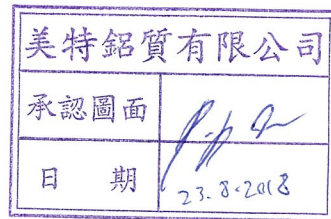 美特鋁質有限公司
承認圖面
日期 23.8.2018